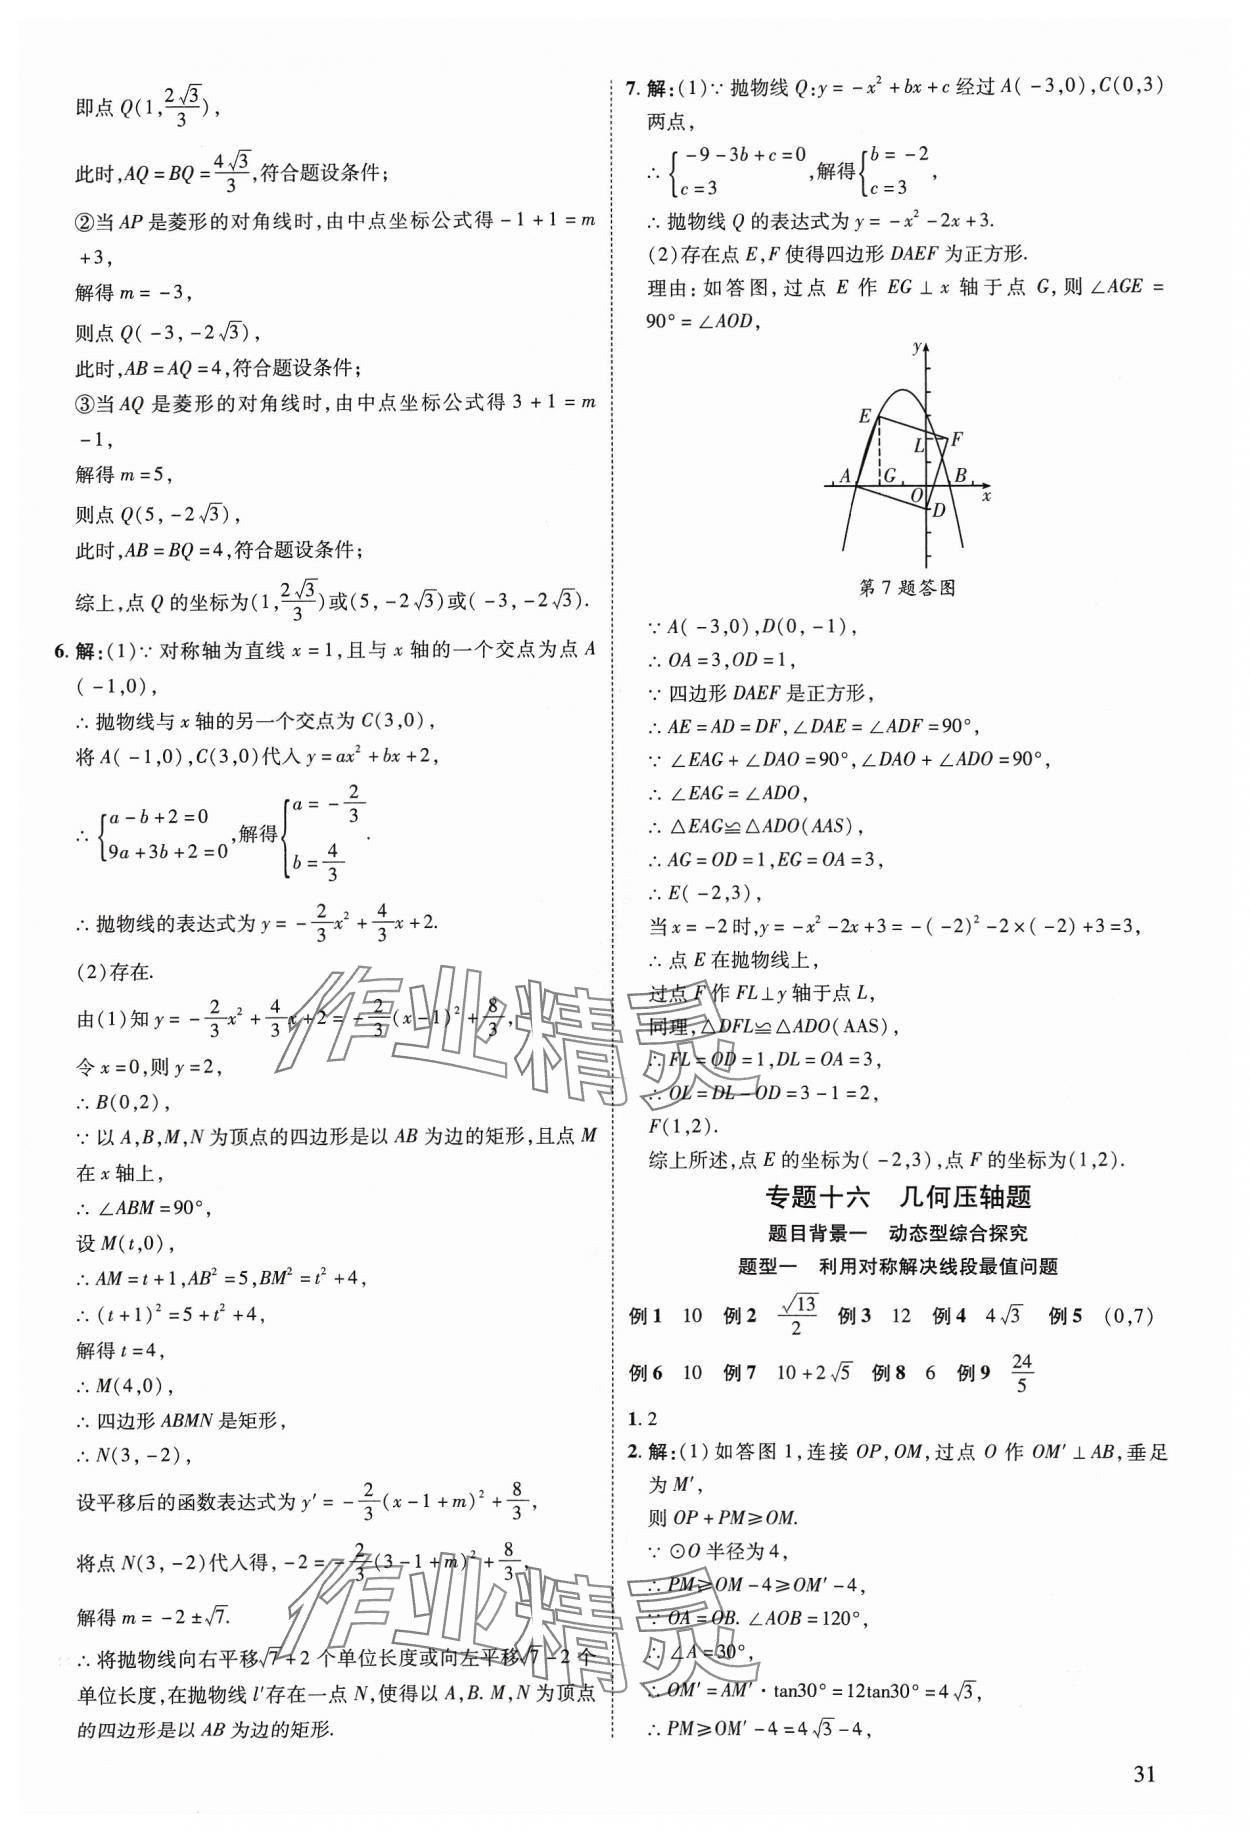 即点 Q(1,2√3/3),
此时,AQ=BQ=4√3/3,符合题设条件;
②当 AP 是菱形的对角线时,由中点坐标公式得 -1+1=m
+3,
解得 m=-3,
则点 Q(-3,-2√3),
此时,AB=AQ=4,符合题设条件;
③当 AQ 是菱形的对角线时,由中点坐标公式得 3+1=m
-1,
解得 m=5,
则点 Q(5,-2√3),
此时,AB=BQ=4,符合题设条件;
综上,点 Q 的坐标为(1,2√3/3)或(5,-2√3)或(-3,-2√3).
6. 解:(1)∵ 对称轴为直线 x=1,且与 x 轴的一个交点为点 A
(-1,0),
∴ 抛物线与 x 轴的另一个交点为 C(3,0),
将 A(-1,0),C(3,0)代入 y=ax²+bx+2,
∴ {a-b+2=0 9a+3b+2=0,解得{a=-2/3 b=4/3.
∴ 抛物线的表达式为 y=-2/3x²+4/3x+2.
(2)存在.
由(1)知 y=-2/3x²+4/3x+2=-2/3(x-1)²+8/3,
令 x=0,则 y=2,
∴ B(0,2),
∵ 以 A,B,M,N 为顶点的四边形是以 AB 为边的矩形,且点 M
在 x 轴上,
∴ ∠ABM=90°,
设 M(t,0),
∴ AM=t+1,AB²=5,BM²=t²+4,
∴ (t+1)²=5+t²+4,
解得 t=4,
∴ M(4,0),
∴ 四边形 ABMN 是矩形,
∴ N(3,-2),
设平移后的函数表达式为 y′=-2/3(x-1+m)²+8/3,
将点 N(3,-2)代入得,-2=-2/3(3-1+m)²+8/3,
解得 m=-2±√7.
∴ 将抛物线向右平移√7+2 个单位长度或向左平移√7-2 个
单位长度,在抛物线 l′存在一点 N,使得以 A,B. M,N 为顶点
的四边形是以 AB 为边的矩形.
7. 解:(1)∵ 抛物线 Q:y=-x²+bx+c 经过 A(-3,0),C(0,3)
两点,
∴ {-9-3b+c=0 c=3,解得{b=-2 c=3,
∴ 抛物线 Q 的表达式为 y=-x²-2x+3.
(2)存在点 E,F 使得四边形 DAEF 为正方形.
理由:如答图,过点 E 作 EG⊥x 轴于点 G,则 ∠AGE=
90°=∠AOD,
y
E
L
F
A
G
B
O
x
D
第 7 题答图
∵ A(-3,0),D(0,-1),
∴ OA=3,OD=1,
∵ 四边形 DAEF 是正方形,
∴ AE=AD=DF,∠DAE=∠ADF=90°,
∵ ∠EAG+∠DAO=90°,∠DAO+∠ADO=90°,
∴ ∠EAG=∠ADO,
∴ △EAG≌△ADO(AAS),
∴ AG=OD=1,EG=OA=3,
∴ E(-2,3),
当 x=-2 时,y=-x²-2x+3=-(-2)²-2×(-2)+3=3,
∴ 点 E 在抛物线上,
过点 F 作 FL⊥y 轴于点 L,
同理,△DFL≌△ADO(AAS),
∴ FL=OD=1,DL=OA=3,
∴ OL=DL-OD=3-1=2,
F(1,2).
综上所述,点 E 的坐标为(-2,3),点 F 的坐标为(1,2).
专题十六 几何压轴题
题目背景一 动态型综合探究
题型一 利用对称解决线段最值问题
例1 10 例2 √13/2 例3 12 例4 4√3 例5 (0,7)
例6 10 例7 10+2√5 例8 6 例9 24/5
1. 2
2. 解:(1)如答图 1,连接 OP,OM,过点 O 作 OM′⊥AB,垂足
为 M′,
则 OP+PM≥OM.
∵ ⊙O 半径为 4,
∴ PM≥OM-4≥OM′-4,
∵ OA=OB. ∠AOB=120°,
∴ ∠A=30°,
∴ OM′=AM′·tan30°=12tan30°=4√3,
∴ PM≥OM′-4=4√3-4,
31
作业精灵
作业精灵